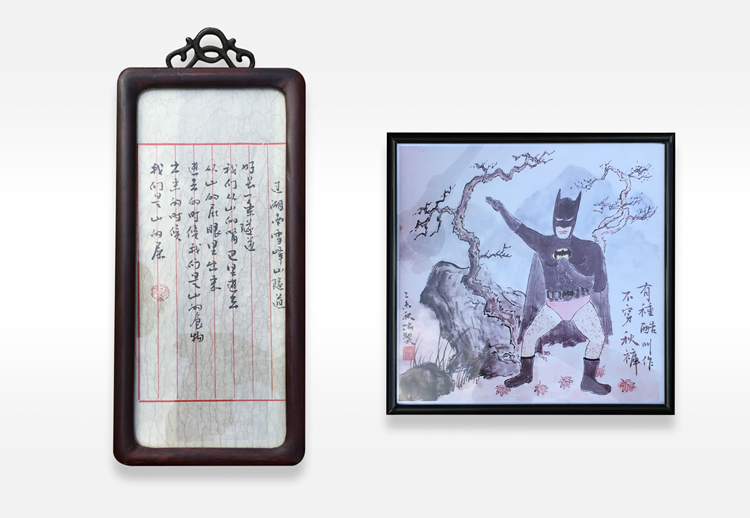 过湖南雪峰山隧道
好长一条隧道
我们从山的嘴巴里进去
从山的屁眼里出来
进去的时候我们是山的食物
出来的时候
我们是山的屎
有種酷叫作
不穿秋褲